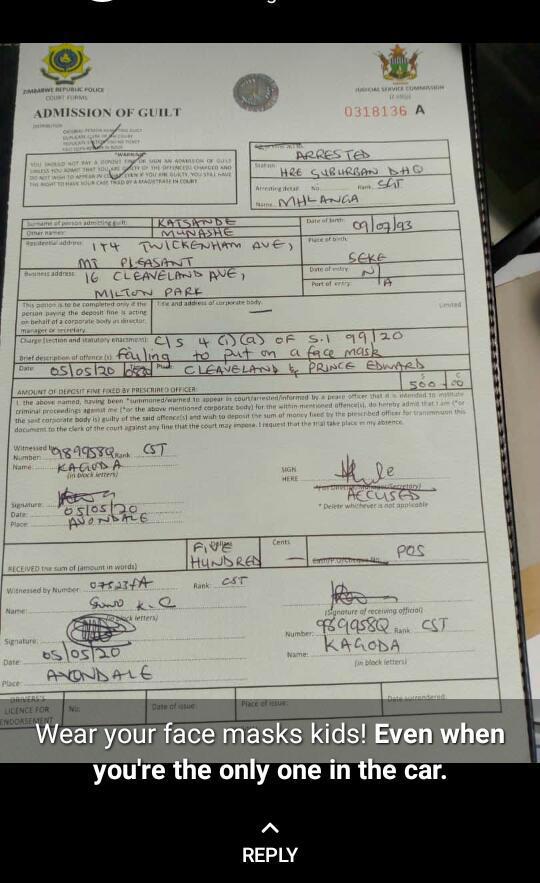 ZIMBABWE REPUBLIC POLICE
COURT FORMS
JUDICIAL SERVICE COMMISSION
ADMISSION OF GUILT
0318136 A
DISTRIBUTION
"WARNING"
YOU SHOULD NOT PAY A DEPOSIT FINE OR SIGN AN ADMISSION OF GUILT
UNLESS YOU ADMIT THAT YOU ARE GUILTY OF THE OFFENCE(S) CHARGED AND
DO NOT WISH TO APPEAR IN COURT. EVEN IF YOU ARE GUILTY, YOU STILL HAVE
THE RIGHT TO HAVE YOUR CASE TRIED BY A MAGISTRATE IN COURT.
ARRESTED
Station: HRE SUBURBAN DHQ
Arresting detail: No. Rank. SGT
Name. MHLANGA
Surname of person admitting guilt: KATSANDE
Other names: MUNASHE
Date of birth: 09/07/93
Residential address: 174 TWICKENHAM AVE,
MT PLEASANT
Place of birth: SEKE
Business address: 16 CLEAVELAND AVE,
MILTON PARK
Date of entry N/A
Port of entry:
This portion is to be completed only if the
person paying the deposit fine is acting
on behalf of a corporate body as director,
manager or secretary.
Title and address of corporate body.
Limited
Charge (section and statutory enactment): C/S 4 (1)(a) OF S.I 99/20
Brief description of offence(s): Failing to put on a face mask
Date: 05/05/20 Place CLEAVELAND & PRINCE EDWARD
AMOUNT OF DEPOSIT FINE FIXED BY PRESCRIBED OFFICER:
$ C
500 00
I, the above named, having been *summoned/warned to appear in court/arrested/informed by a peace officer that it is intended to institute
criminal proceedings against me (*or the above mentioned corporate body) for the within-mentioned offence(s), do hereby admit that I am (*or
the said corporate body is) guilty of the said offence(s) and wish to deposit the sum of money fixed by the prescribed officer for transmission this
document to the clerk of the court against any fine that the court may impose. I request that the trial take place in my absence.
Witnessed by
Number: 989958Q Rank CST
Name: KAGODA
(in block letters)
SIGN
HERE
ACCUSED
* Delete whichever is not applicable
Signature:
Date: 05/05/20
Place: AVONDALE
RECEIVED the sum of (amount in words) FIVE HUNDRED
Cents
POS
Witnessed by Number: Rank: CST
Name:
(in block letters)
(Signature of receiving official)
Number: 989958Q Rank CST
Name: KAGODA
(in block letters)
Signature:
Date: 05/05/20
Place: AVONDALE
DRIVERS'S
LICENCE FOR
ENDORSEMENT
No:
Date of issue:
Place of issue:
Date surrendered:
Wear your face masks kids! Even when
you're the only one in the car.
REPLY